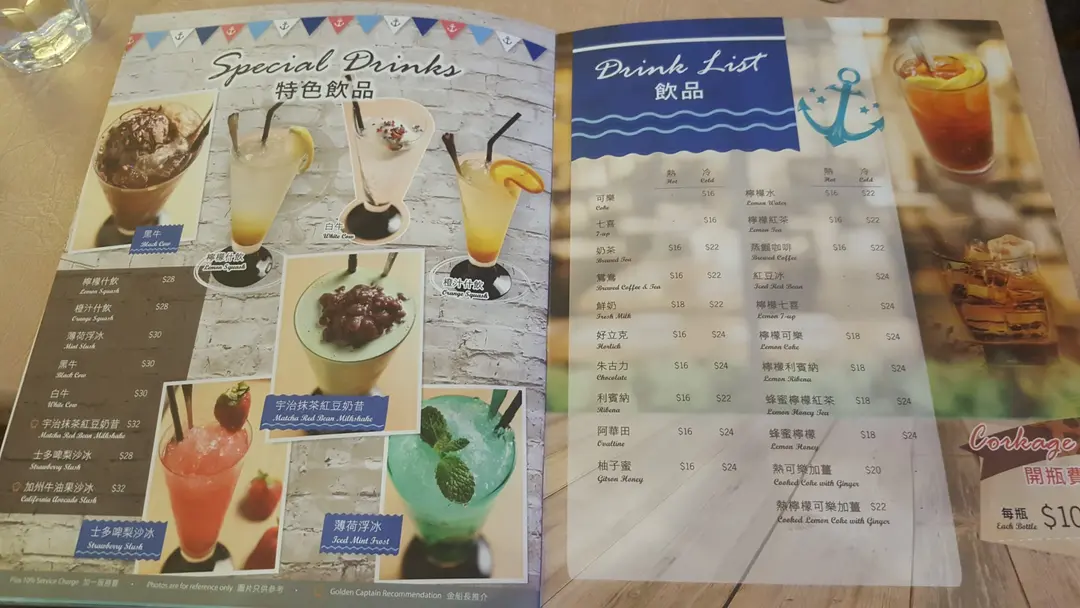 Special Drinks
特色飲品
黑牛
Black Cow
檸檬什飲
Lemon Squash
白牛
White Cow
橙汁什飲
Orange Squash
檸檬什飲 $28
Lemon Squash
橙汁什飲 $28
Orange Squash
薄荷浮冰 $30
Mint Slush
黑牛 $30
Black Cow
白牛 $30
White Cow
宇治抹茶紅豆奶昔 $32
Matcha Red Bean Milkshake
士多啤梨沙冰 $28
Strawberry Slush
加州牛油果沙冰 $32
California Avocado Slush
宇治抹茶紅豆奶昔
Matcha Red Bean Milkshake
士多啤梨沙冰
Strawberry Slush
薄荷浮冰
Iced Mint Frost
Plus 10% Service Charge 加一服務費 • Photos are for reference only 圖片只供參考 • Golden Captain Recommendation 金船長推介
Drink List
飲品
熱 冷
Hot Cold
可樂 - $16
Coke
七喜 - $16
7-up
奶茶 $16 $22
Brewed Tea
鴛鴦 $16 $22
Brewed Coffee & Tea
鮮奶 $18 $22
Fresh Milk
好立克 $16 $24
Horlick
朱古力 $16 $24
Chocolate
利賓納 $16 $22
Ribena
阿華田 $16 $24
Ovaltine
柚子蜜 $16 $24
Gitron Honey
熱 冷
Hot Cold
檸檬水 $16 $22
Lemon Water
檸檬紅茶 $16 $22
Lemon Tea
蒸餾咖啡 $16 $22
Brewed Coffee
紅豆冰 - $24
Iced Red Bean
檸檬七喜 - $24
Lemon 7-up
檸檬可樂 $18 $24
Lemon Coke
檸檬利賓納 $18 $24
Lemon Ribena
蜂蜜檸檬紅茶 $18 $24
Lemon Honey Tea
蜂蜜檸檬 $18 $24
Lemon Honey
熱可樂加薑 $20
Cooked Coke with Ginger
熱檸檬可樂加薑 $22
Cooked Lemon Coke with Ginger
Corkage
開瓶費
每瓶 $10
Each Bottle